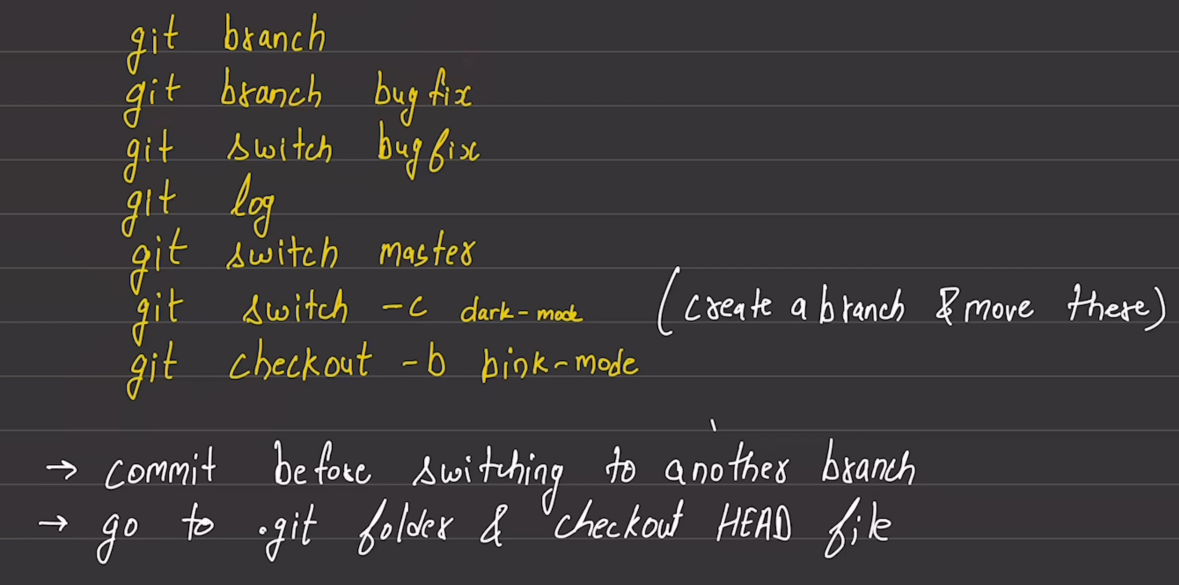 git branch
git branch bugfix
git switch bugfix
git log
git switch master
git switch -c dark-mode (create a branch & move there)
git checkout -b pink-mode
→ commit before switching to another branch
→ go to .git folder & checkout HEAD file